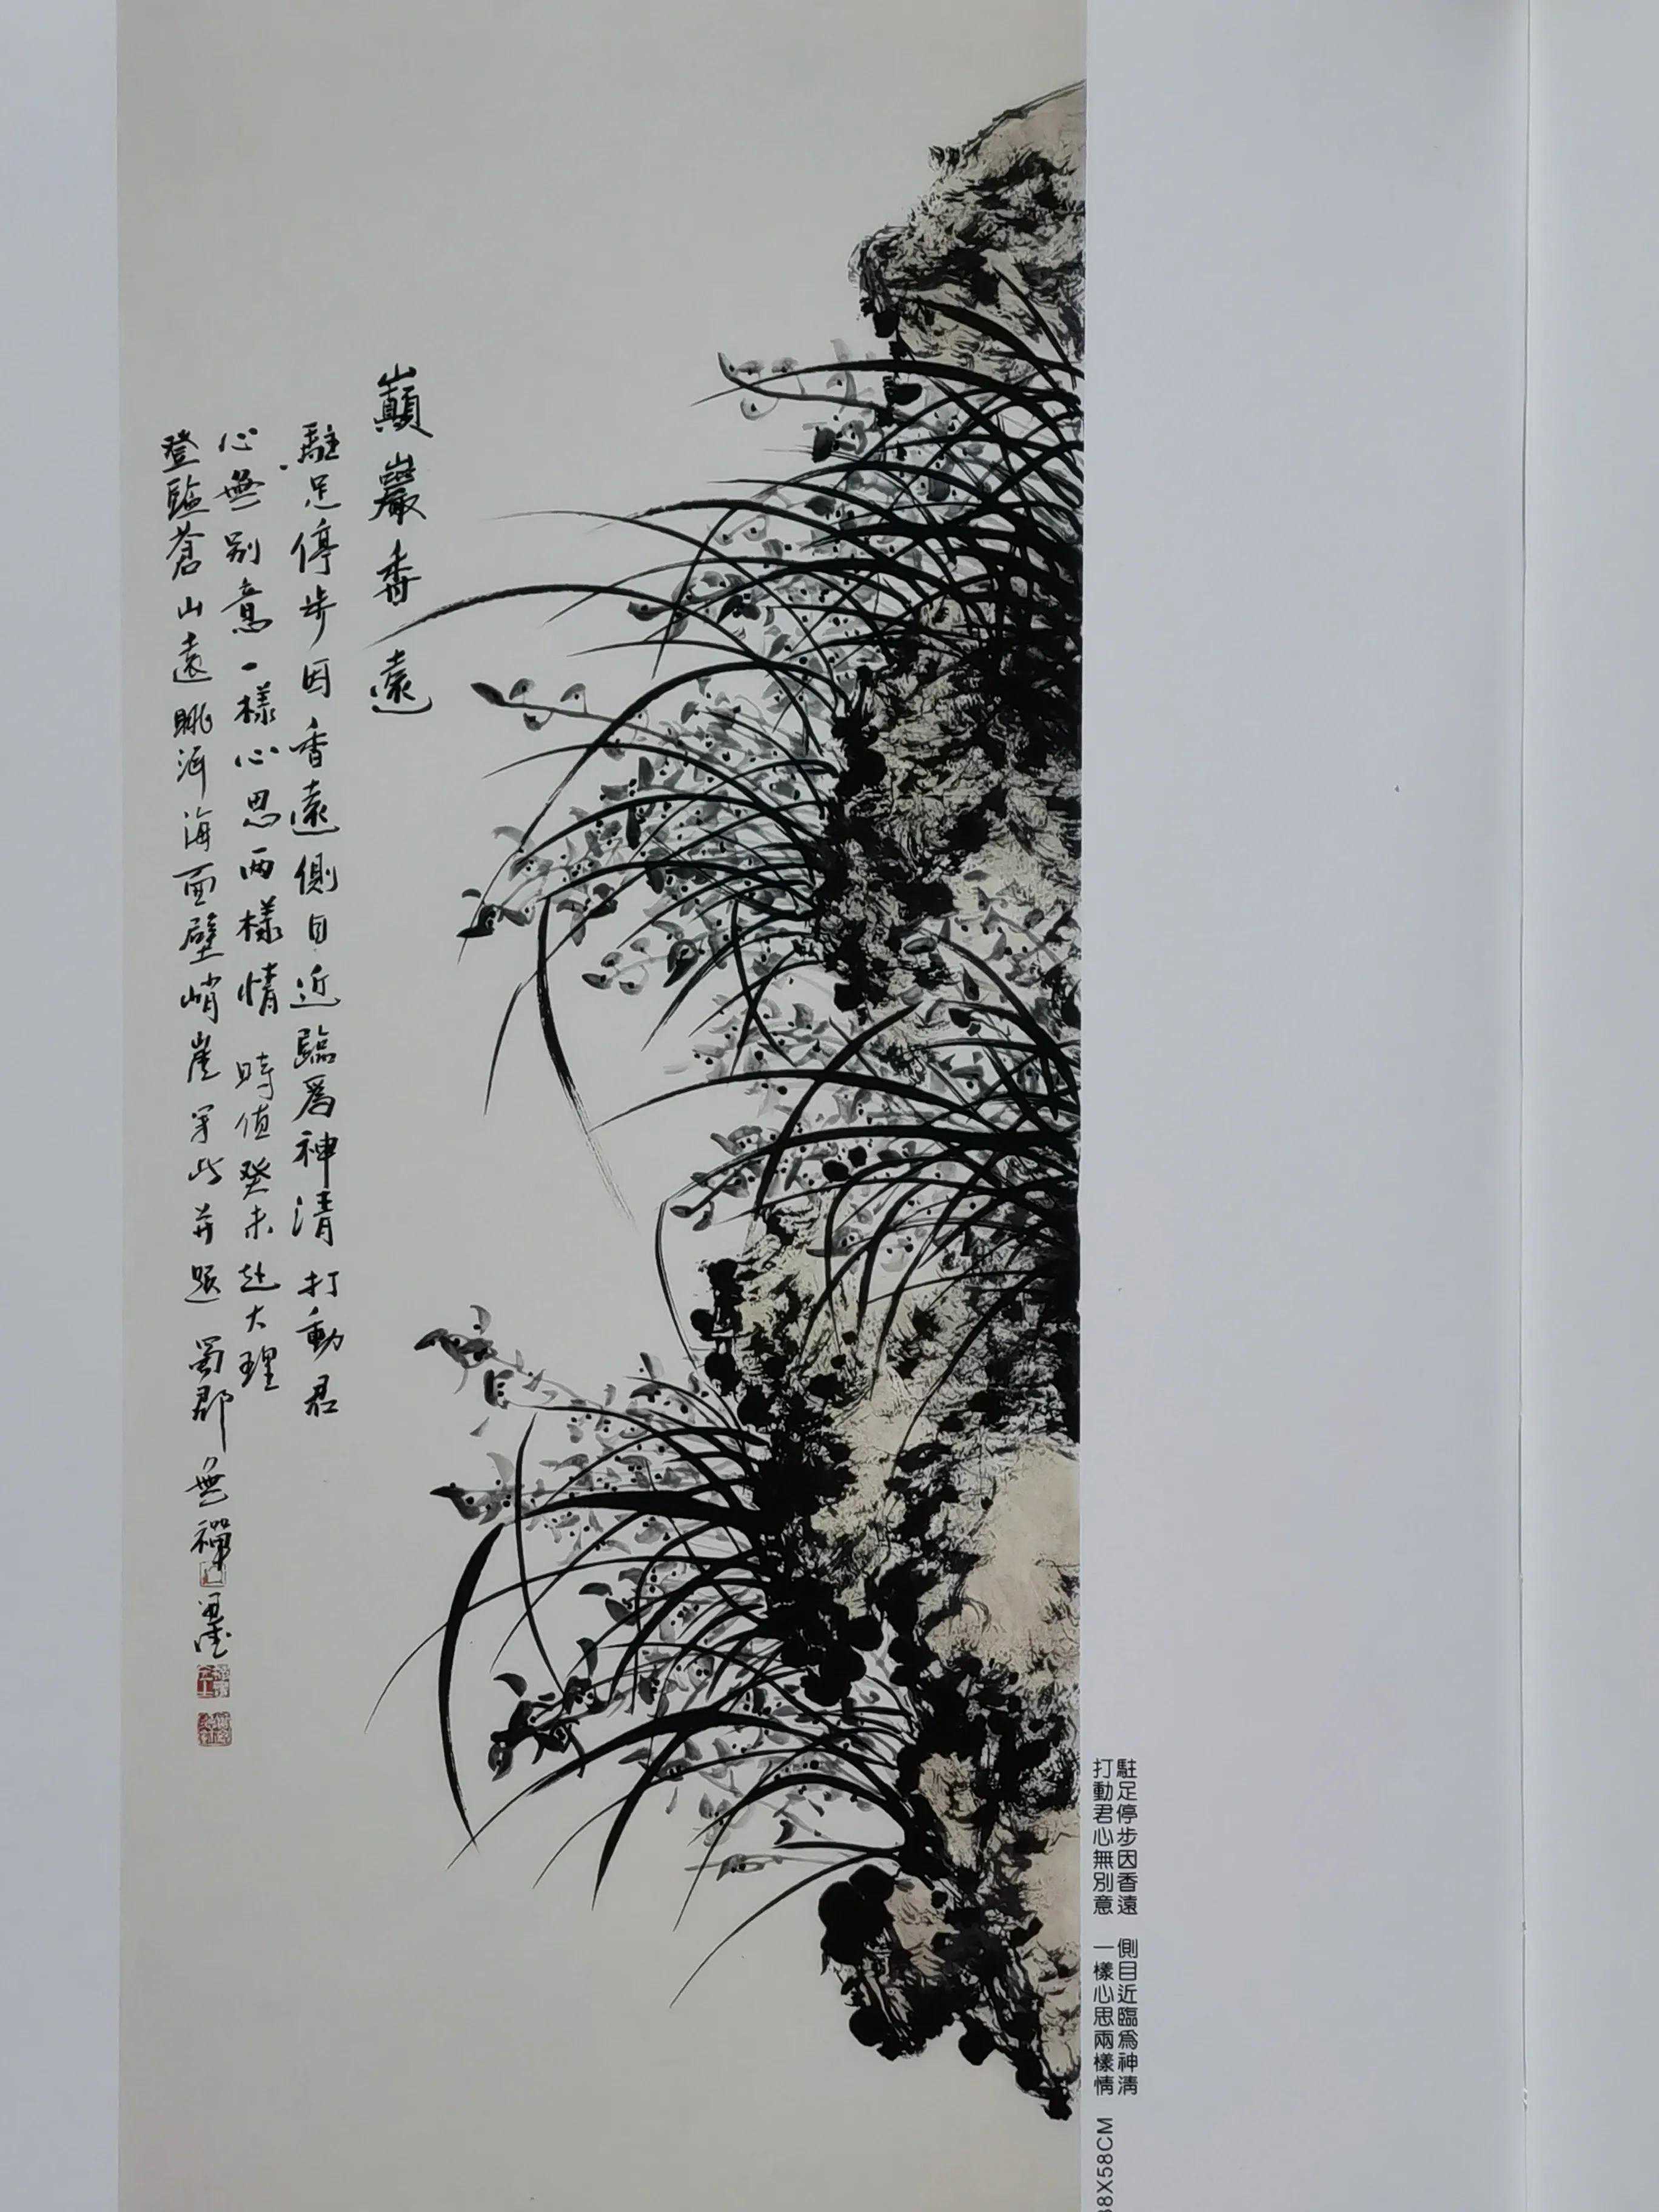 巔巖香遠
駐足停步因香遠側目近臨為神清打動君
心無別意一樣心思两樣情 時值癸未赴大理
登臨蒼山遠眺洱海面壁峭崖写此并題 蜀郡 無禪
駐足停步因香遠 側目近臨為神清
打動君心無別意 一樣心思兩樣情 8X58CM